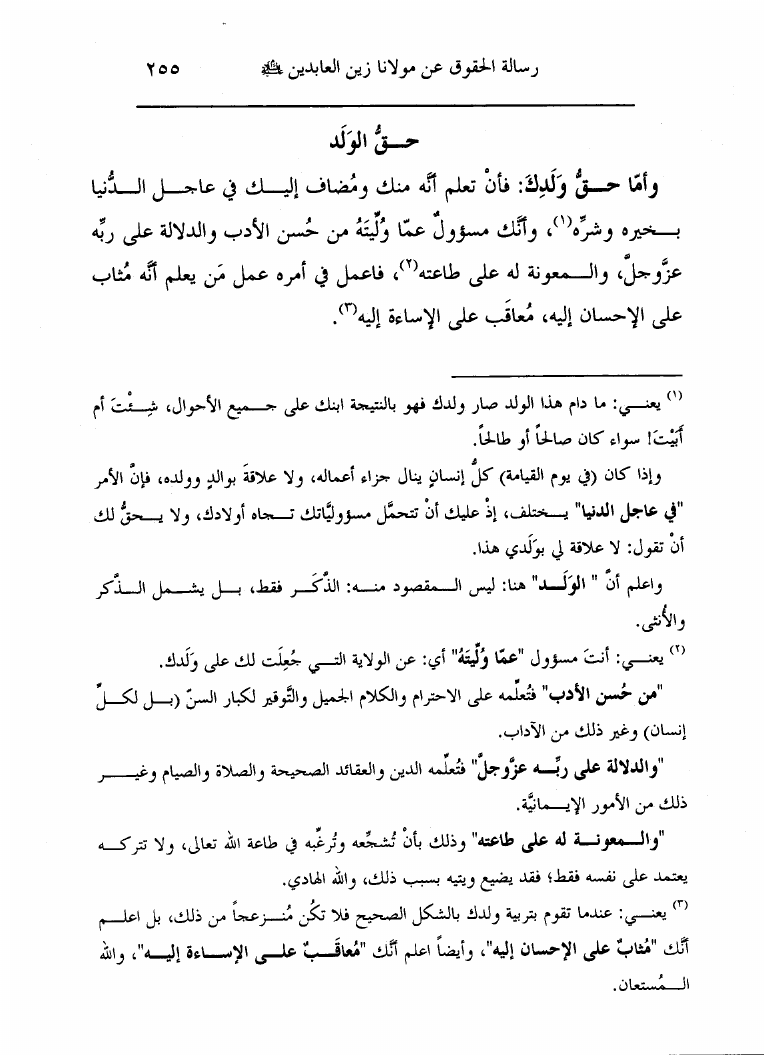 رسالة الحقوق عن مولانا زين العابدين ٢٥٥
حـــقُّ الوَلَد
وأمّا حـــقُّ وَلَدِكَ: فأنْ تعلم أنَّه منك ومُضاف إليـــك في عاجـــل الـــدُّنيا
بـــخيره وشرِّه(١)، وأنَّك مسؤولٌ عمّا وُلِّيتَهُ من حُسن الأدب والدلالة على ربِّه
عزَّوجلَّ، والـــمعونة له على طاعته(٢)، فاعمل في أمره عمل مَن يعلم أنَّه مُثاب
على الإحسان إليه، مُعاقَب على الإساءة إليه(٣).
(١) يعنـــي: ما دام هذا الولد صار ولدك فهو بالنتيجة ابنك على جـــميع الأحوال، شِـــئْتَ أم
أَبَيْتَ! سواء كان صالحاً أو طالحاً.
وإذا كان (في يوم القيامة) كلُّ إنسانٍ ينال جزاء أعماله، ولا علاقةَ بوالدٍ وولده، فإنَّ الأمر
"في عاجل الدنيا" يـــختلف، إذْ عليك أنْ تتحمَّل مسؤوليَّاتك تـــجاه أولادك، ولا يـــحقُّ لك
أنْ تقول: لا علاقة لي بوَلَدي هذا.
واعلم أنَّ "الوَلَـــد" هنا: ليس الـــمقصود منـــه: الذَّكَـــر فقط، بـــل يشـــمل الـــذَّكر
والأُنثى.
(٢) يعنـــي: أنتَ مسؤول "عمّا وُلِّيتَهُ" أي: عن الولاية التـــي جُعِلَت لك على وَلَدك.
"من حُسن الأدب" فتُعلِّمه على الاحترام والكلام الجميل والتَّوقير لكبار السنّ (بـــل لكـــلِّ
إنسان) وغير ذلك من الآداب.
"والدلالة على ربِّـــه عزَّوجلَّ" فتُعلِّمه الدين والعقائد الصحيحة والصلاة والصيام وغيـــر
ذلك من الأمور الإيـــمانيَّة.
"والـــمعونـــة له على طاعته" وذلك بأنْ تُشجِّعه وتُرغِّبه في طاعة الله تعالى، ولا تتركـــه
يعتمد على نفسه فقط؛ فقد يضيع ويتيه بسبب ذلك، والله الهادي.
(٣) يعنـــي: عندما تقوم بتربية ولدك بالشكل الصحيح فلا تكُن مُنـــزعجاً من ذلك، بل اعلـــم
أنَّك "مُثابٌ على الإحسان إليه"، وأيضاً اعلم أنَّك "مُعاقَـــبٌ علـــى الإســـاءة إليـــه"، والله
الـــمُستعان.